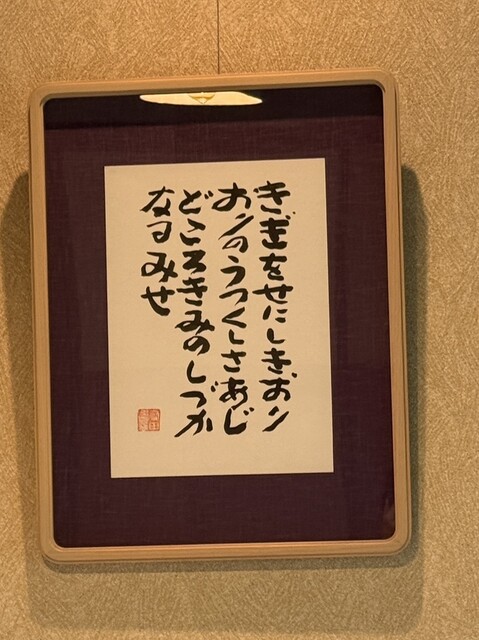 きぎをせにしきおり
おりのうつくしさあじ
どころきみのしづか
なるみせ